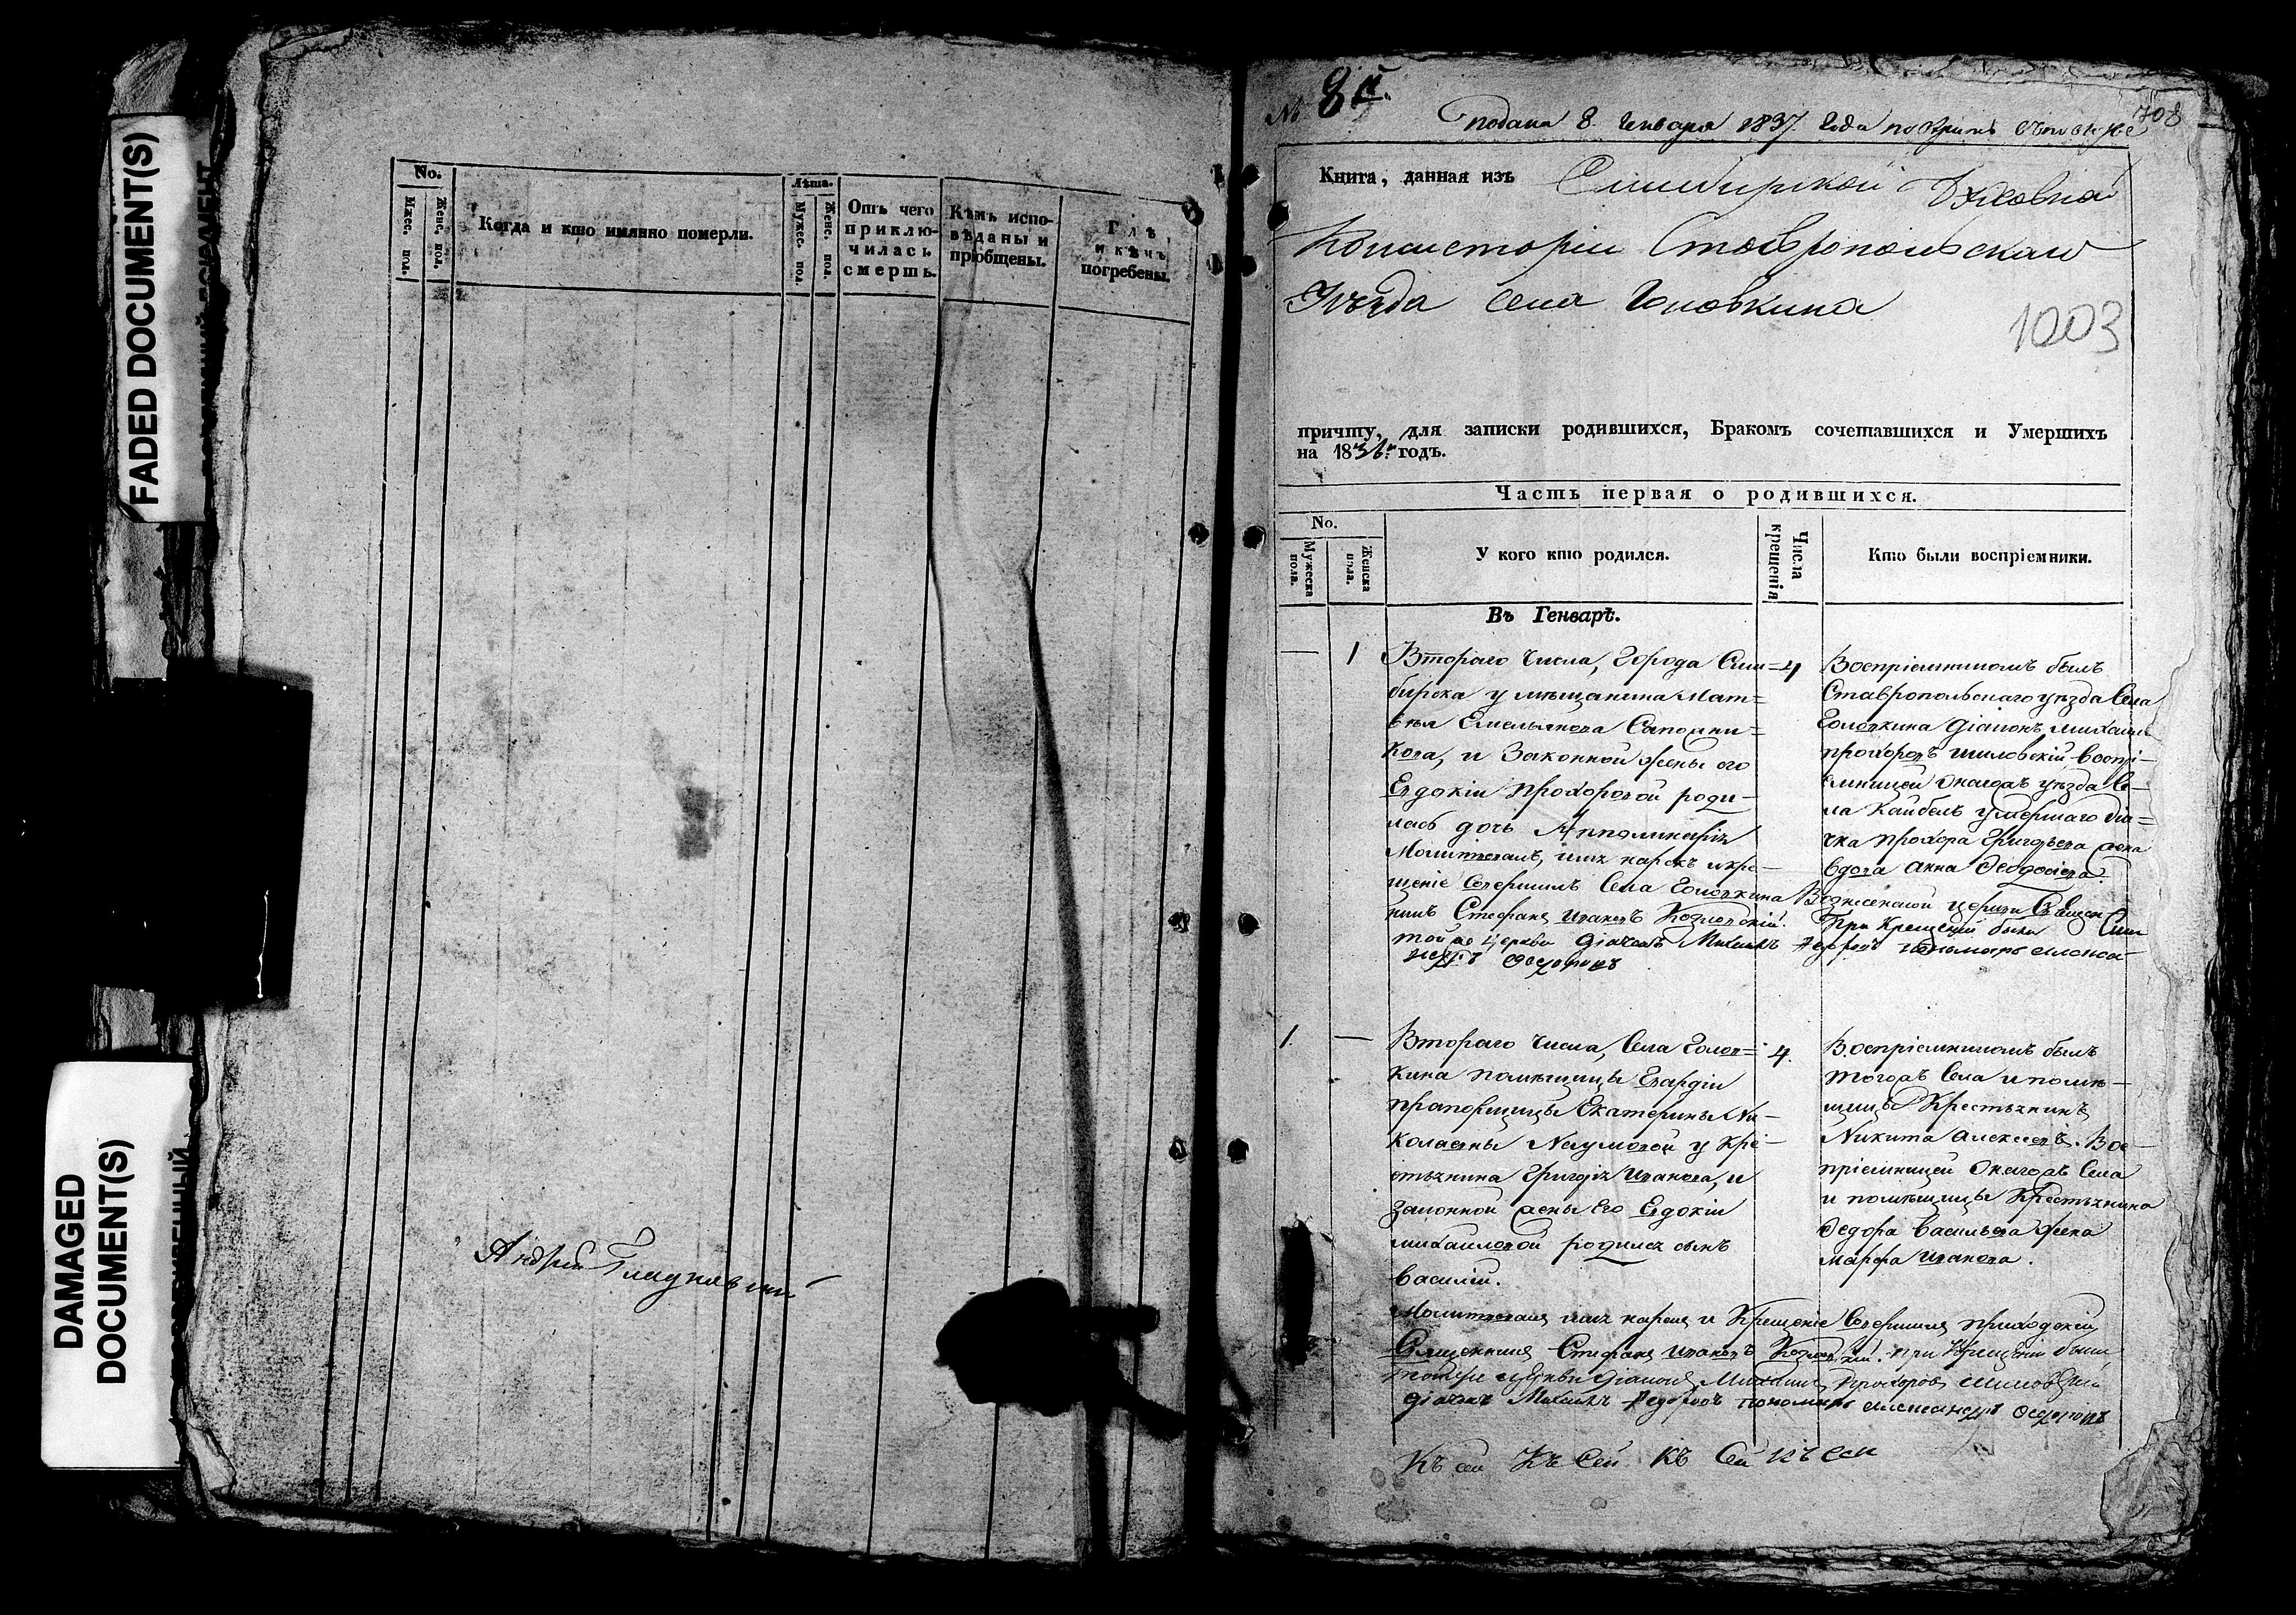 FADED DOCUMENT(S)
DAMAGED
DOCUMENT(S)
No.
Мжес. пол.
Женс. пол.
Когда и кто имянно померли.
Лѣта.
Мужес. пол.
Женс. пол.
Отъ чего
приклю-
чилась
смерть.
Кѣмъ испо-
вѣданы и
пріобщены.
Гдѣ
и кѣмъ
погребены.
Андрей
№ 8й.
708
подана 8 Генваря 1837 года
Книга, данная изъ Симбирской Духовной
Консисторіи Ставропольскаго
Уѣзда села Головкина
1003
причту, для записки родившихся, Бракомъ сочетавшихся и Умершихъ
на 1836й годъ.
Часть первая о родившихся.
No.
Мужеска
пола.
Женска
пола.
У кого кто родился.
Числа
крещенія
Кто были воспріемники.
Въ Генварѣ.
— 1
Втораго числа, города Сим=
бирска у мѣщанина Мат=
вѣя Емельянова Сапожни=
кова, и Законной жены его
Евдокіи Прохоровой роди-
лась дочь Апполинарія
Молитвовалъ, имя нарекъ и кре-
4
Воспріемникомъ былъ
Ставропольскаго уѣзда Села
Головкина діаконъ Михаилъ
Прохоровъ Шиловскій воспрі-
емницей онагожъ уѣзда Се-
ла Кайбелъ умершаго дья=
чка Прохора Григорьева жена
вдова Анна Ѳеодосіева.
щеніе Совершилъ Села Головкина Вознесенской церкви Священ
никъ Стефанъ Ивановъ Козловскій. При Крещеніи были Сей
тойже церкви діачокъ Михаилъ Федоровъ пономарь Алекса
ндръ Федоровъ
1. —
Втораго числа, Села Голов=
кина помѣщицы Гвардіи
прапорщицы Екатерины Ни-
колаевны Наумовой у кре-
стьянина Григорія Иванова, и
законной жены его Евдокіи
Михайловой родился сынъ
Василій.
4.
Воспріемникомъ былъ
тогожъ Села и помѣ-
щицы Крестьянинъ
Никита Алексеевъ. Вос-
пріемницей онагожъ Села
и помѣщицы Крестьянина
Федора Васильева жена
Марфа Иванова.
Молитвовалъ имя нарекъ и Крещеніе Совершилъ приходскій
Священникъ Стефанъ Ивановъ Козловскій. При Крещеніи были
тойже церкви діаконъ Михаилъ Прохоровъ Шиловскій
діачокъ Михаилъ Федоровъ пономарь Александръ Федоровъ
Къ сей Къ Сей Къ Сей Къ сей